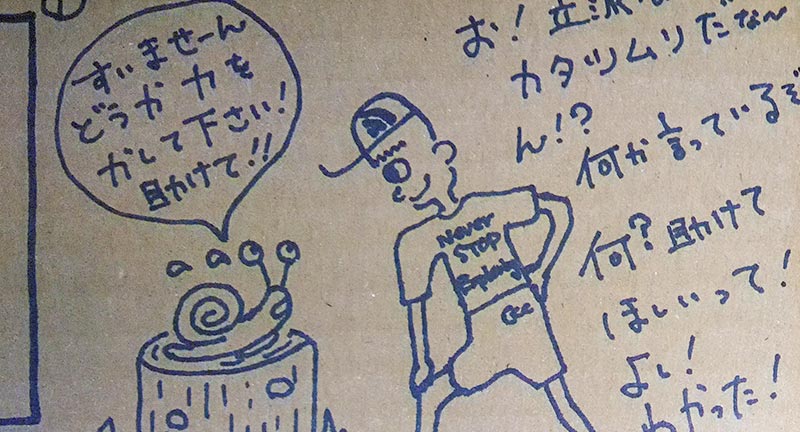 すいませーん
どうか力を
かして下さい!
助けて!!
お!立派な
カタツムリだな〜
ん!?
何か言っているぞ
何?助けて
ほしいって!
よし!
わかった!
Never
STOP